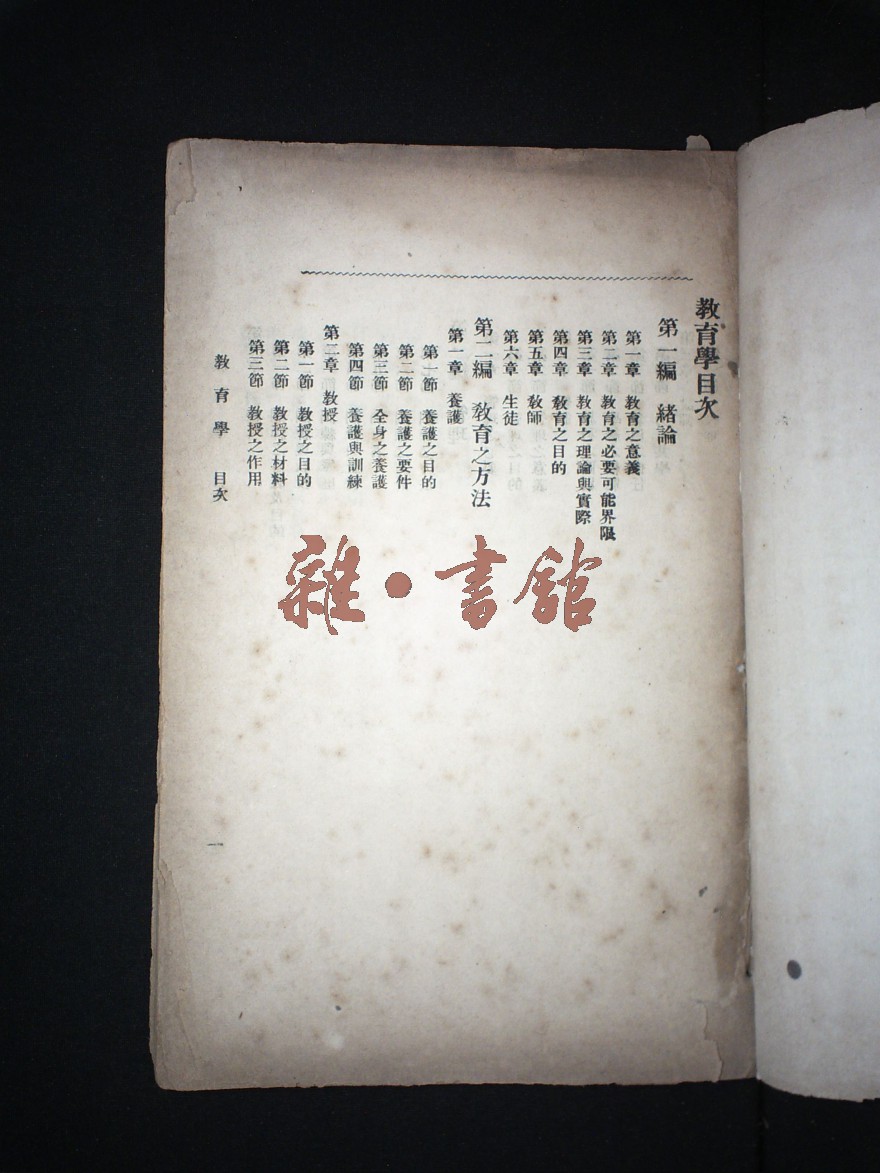 教育學目次
第一編　緒論
第一章　教育之意義
第二章　教育之必要可能界限
第三章　教育之理論與實際
第四章　教育之目的
第五章　教師
第六章　生徒
第二編　教育之方法
第一章　養護
第一節　養護之目的
第二節　養護之要件
第三節　全身之養護
第四節　養護與訓練
第二章　教授
第一節　教授之目的
第二節　教授之材料
第三節　教授之作用
教育學　目次
一
雜·書館